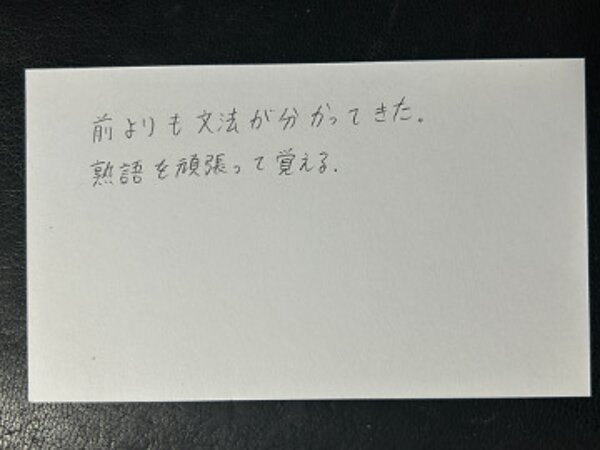 前よりも文法が分かってきた。
熟語を頑張って覚える.